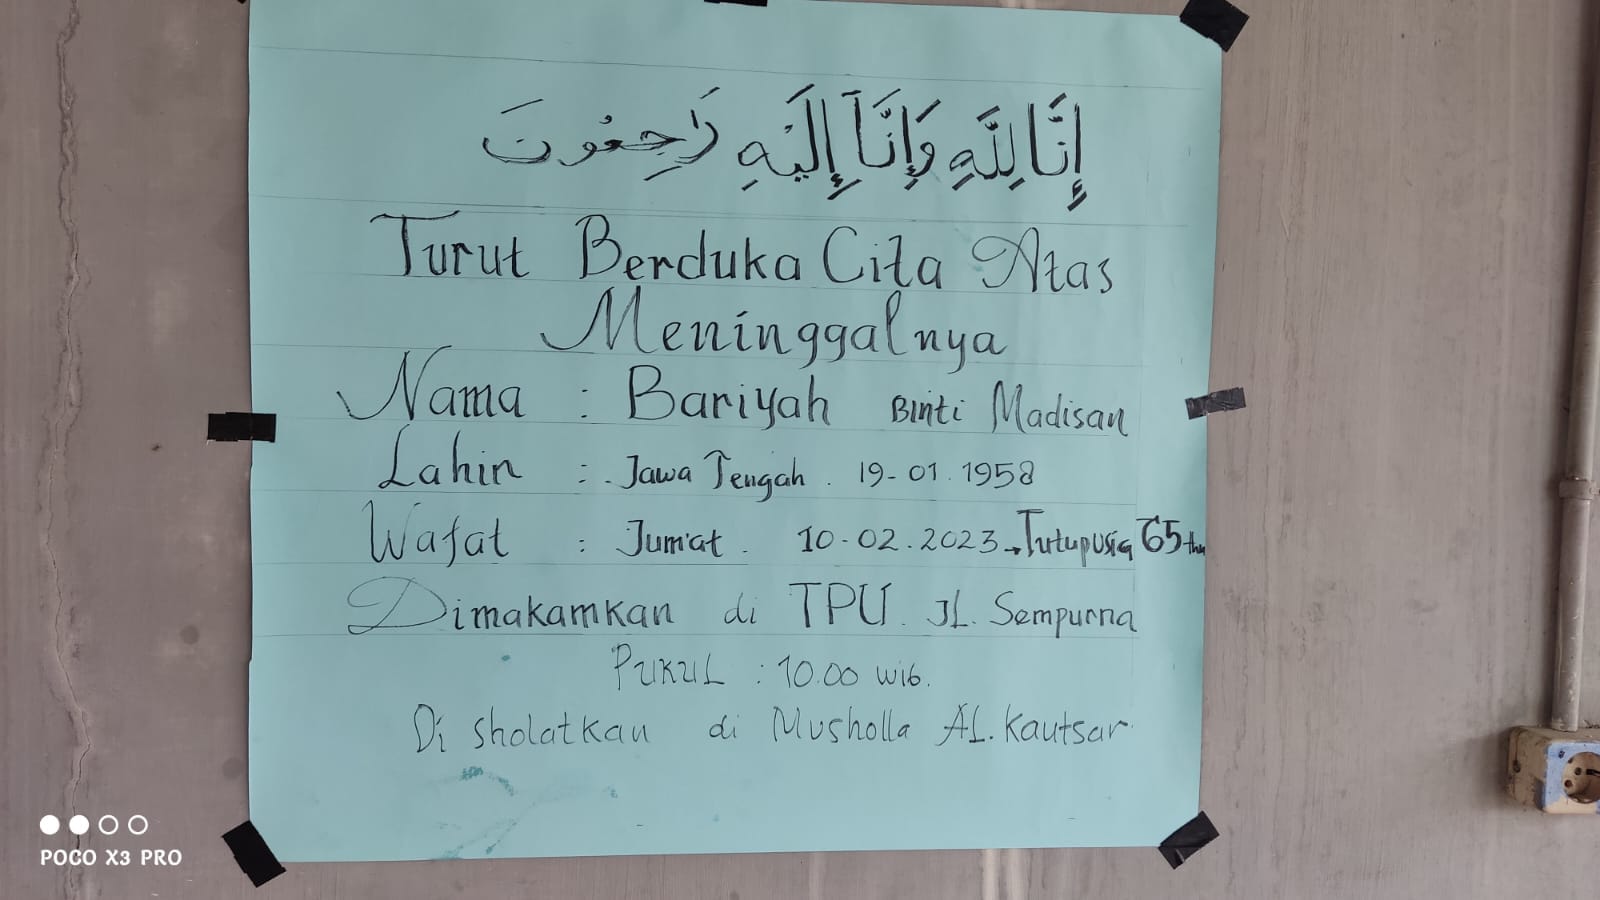 إِنَّا لِلَّهِ وَإِنَّآ إِلَيْهِ رَاجِعُونَ
Turut Berduka Cita Atas
Meninggalnya
Nama : Bariyah Binti Madisan
Lahin : Jawa Tengah. 19-01.1958
Wafat : Jum'at. 10-02.2023 → Tutup usia 65 thn
Dimakamkan di TPU. JL. Sempurna
PUKUL : 10.00 wib.
Di sholatkan di Musholla AL. Kautsar
POCO X3 PRO